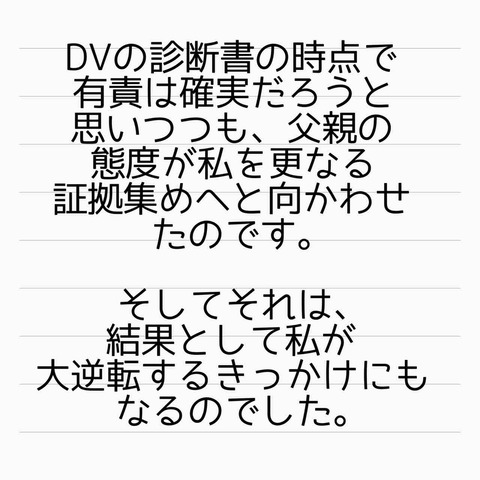 DVの診断書の時点で
有責は確実だろうと
思いつつも、父親の
態度が私を更なる
証拠集めへと向かわせ
たのです。
そしてそれは、
結果として私が
大逆転するきっかけにも
なるのでした。